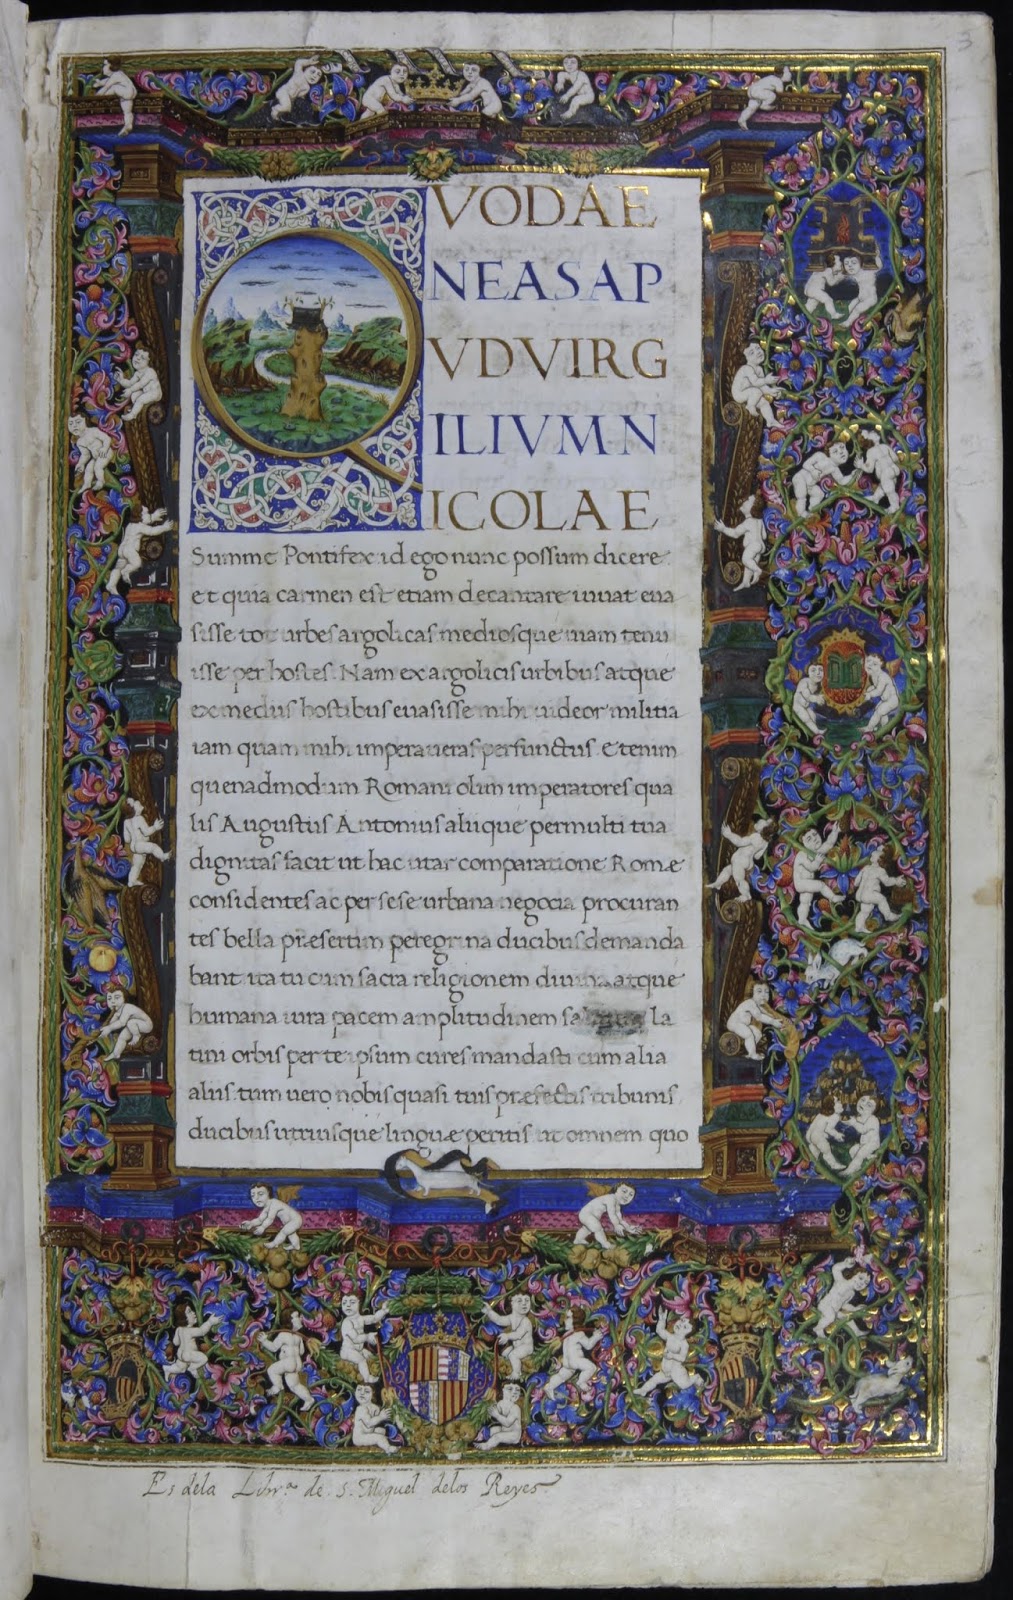 3
QVODAE
NEAS AP
VD VIRG
ILIVM N
ICOLAE
Summe Pontifex id ego nunc possum dicere
et quia carmen est etiam decantare iuuat eua
sisse tot urbes argolicas mediosque uiam tenu
isse per hostes. Nam ex argolicis urbibus atque
ex mediis hostibus euasisse mihi uideor militia
iam quam mihi imperaueras perfunctus. Etenim
quenadmodum Romani olim imperatores qua
lis Augustus Antonius aliique permulti tua
dignitas facit ut hac utar comparatione Romæ
considentes ac per sese urbana negocia procuran
tes bella præsertim peregrina ducibus demanda
bant ita tu cum sacra religionem diuina atque
humana iura pacem amplitudinem la
tini orbis per te ipsum cures mandasti cum alia
aliis tum uero nobis quasi tuis præfectis tribunis
ducibus utriusque linguæ peritis ut omnem quo
Es dela Libr.ª de S. Miguel delos Reyes.